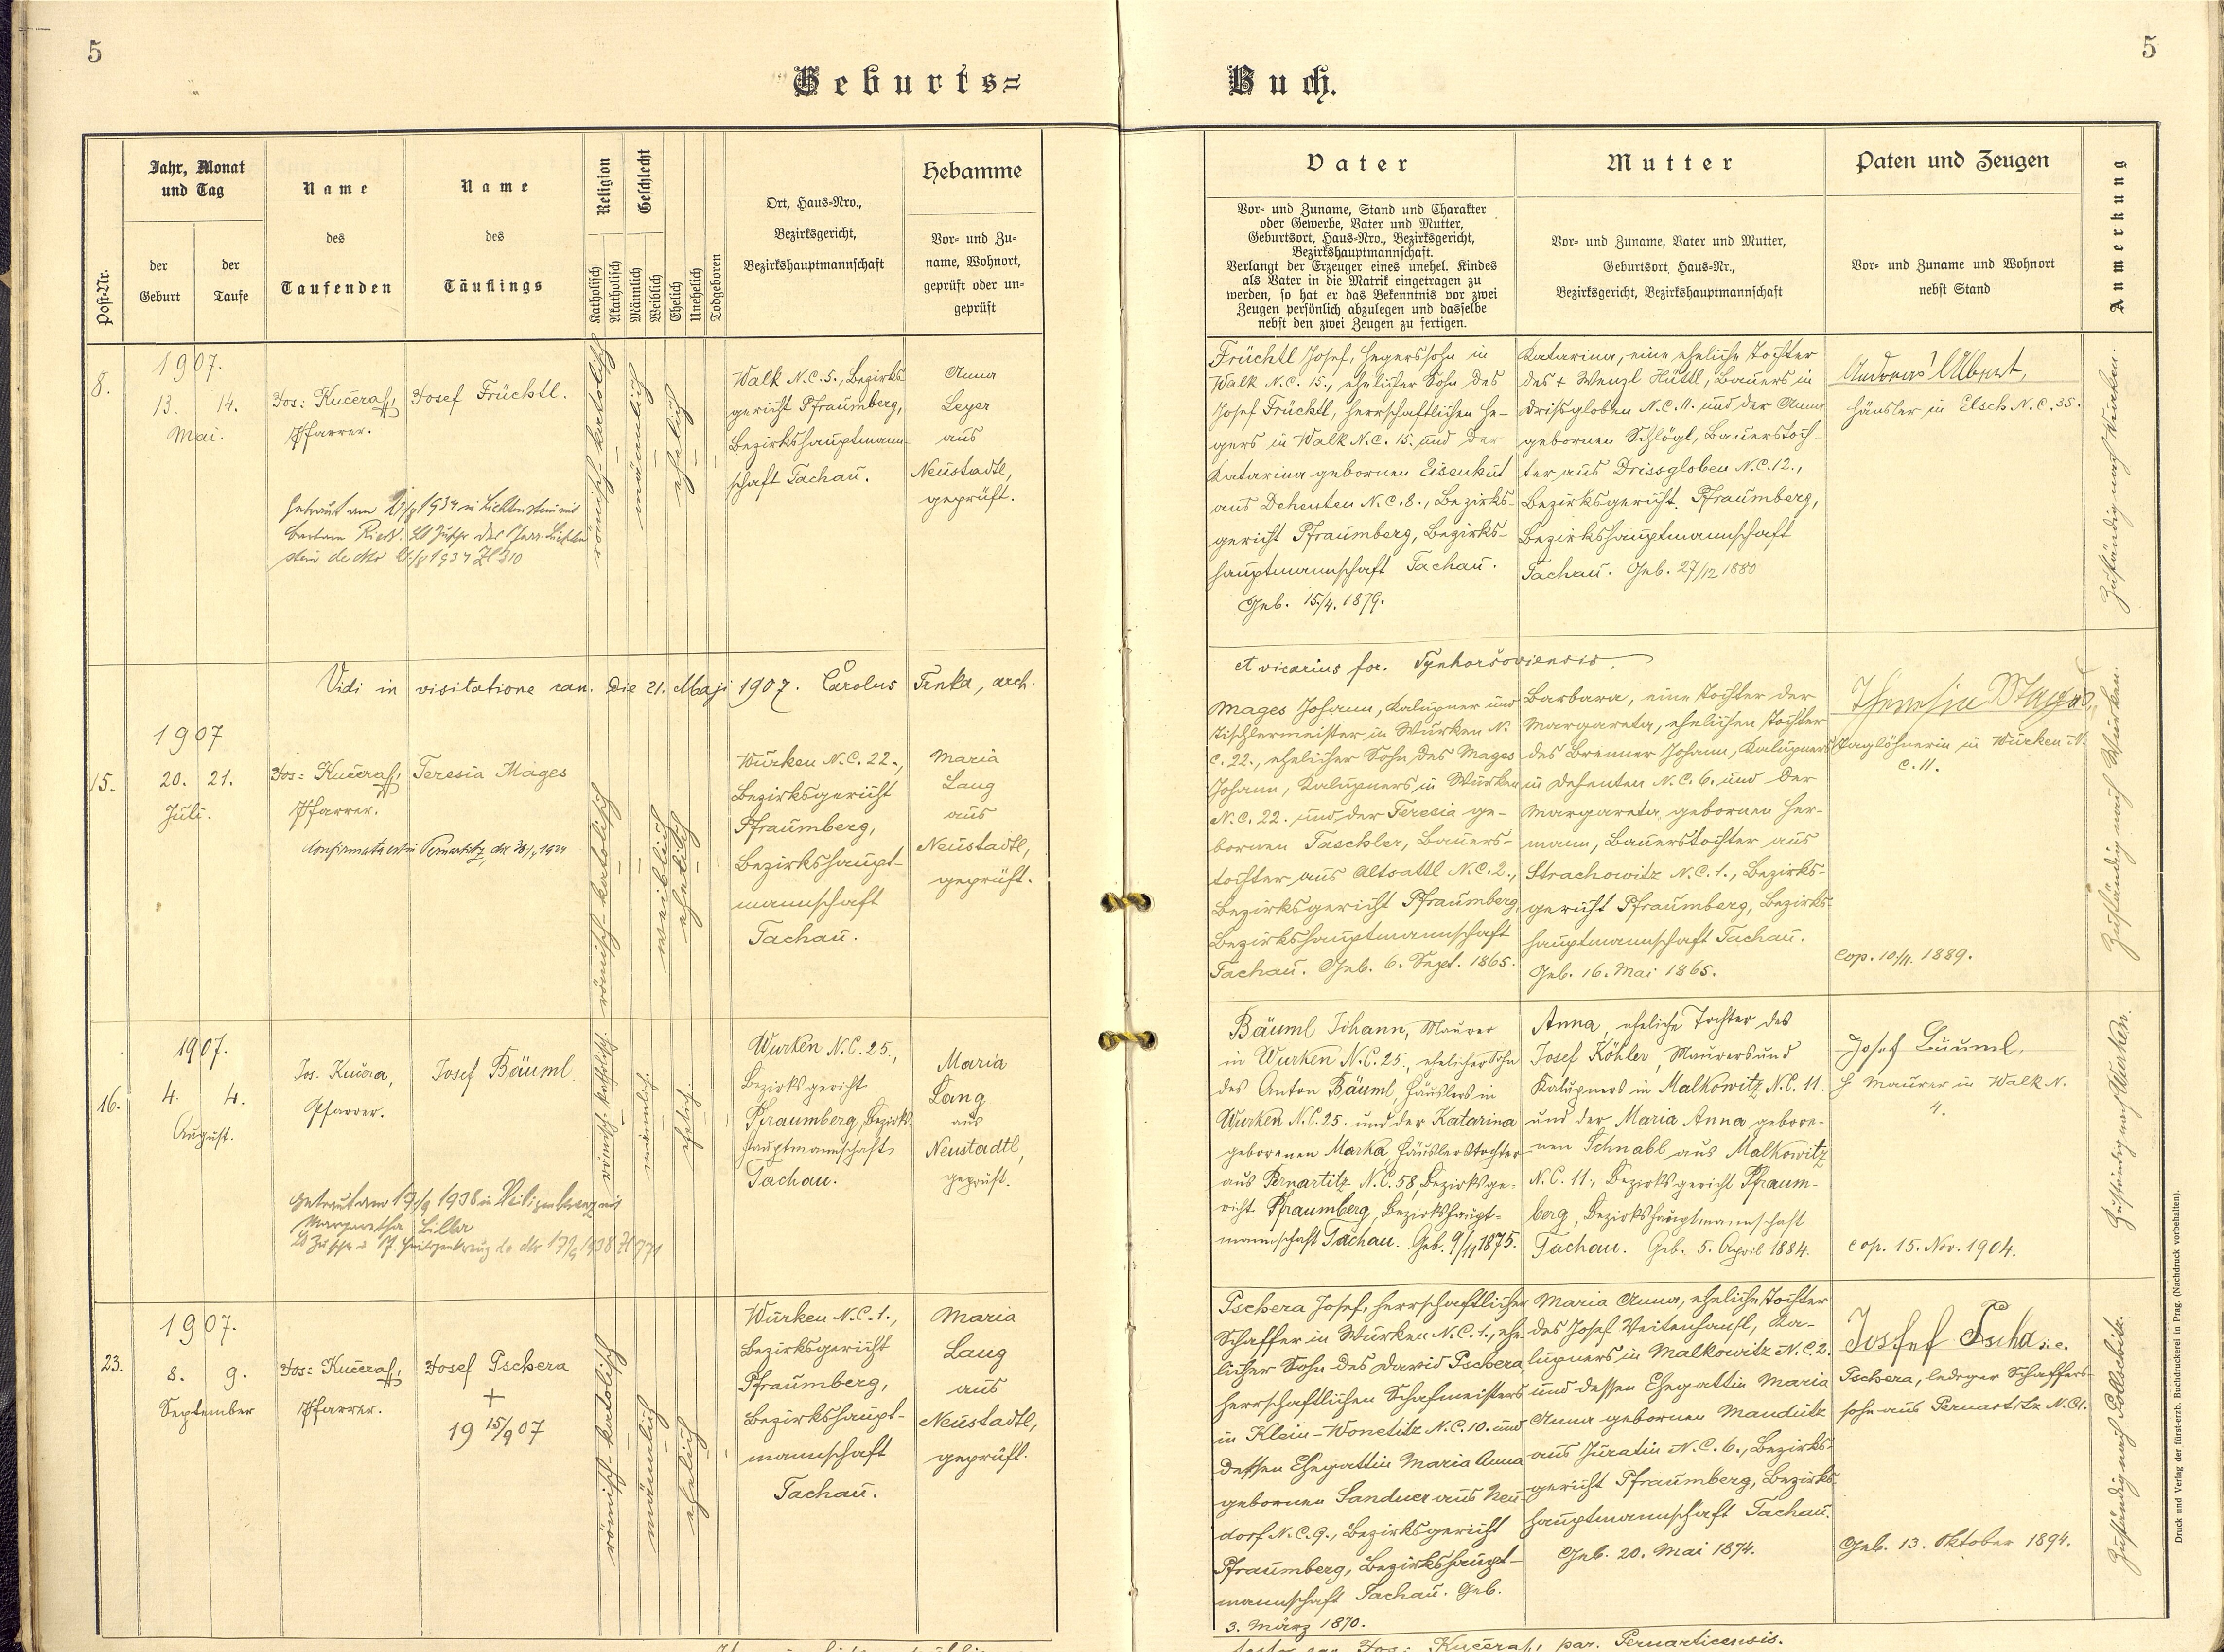 5
5
Geburts=
Buch.
Post-Nr.
Jahr, Monat
und Tag
der
Geburt
der
Taufe
Name
des
Taufenden
Name
des
Täuflings
Religion
Katholisch
Akatholisch
Geschlecht
Männlich
Weiblich
Ehelich
Unehelich
Todgeboren
Ort, Haus=Nro.,
Bezirksgericht,
Bezirkshauptmannschaft
Hebamme
Vor= und Zu=
name, Wohnort,
geprüft oder un=
geprüft
Vater
Vor= und Zuname, Stand und Charakter
oder Gewerbe, Vater und Mutter,
Geburtsort, Haus=Nro., Bezirksgericht,
Bezirkshauptmannschaft.
Verlangt der Erzeuger eines unehel. Kindes
als Vater in die Matrik eingetragen zu
werden, so hat er das Bekenntnis vor zwei
Zeugen persönlich abzulegen und dasselbe
nebst den zwei Zeugen zu fertigen.
Mutter
Vor= und Zuname, Vater und Mutter,
Geburtsort, Haus=Nr.,
Bezirksgericht, Bezirkshauptmannschaft
Paten und Zeugen
Vor= und Zuname und Wohnort
nebst Stand
Anmerkung
8.
1907.
13. 14.
Mai.
Jos: Kučera,
Pfarrer.
Josef Früchtl.
Getraut am 1934 in Lichtenstein mit
römisch-katolisch
männlich
ehelich
Walk N.C.5., Bezirks-
gericht Pfraumberg,
Bezirkshauptmann-
schaft Tachau.
Anna
Leyer
aus
Neustadtl,
geprüft.
Früchtl Josef, Hegerssohn in
Walk N.C. 15., ehelicher Sohn des
Josef Früchtl, herrschaftlichen He-
gers in Walk N.C. 15. und der
Katarina gebornen Eisenhut
aus Dehenten N.C.8., Bezirks-
gericht Pfraumberg, Bezirks-
hauptmannschaft Tachau.
Geb. 15./4. 1879.
Katarina, eine eheliche Tochter
des + Wenzl Hüttl, Bauers in
Drissgloben N.C.11. und der Anna
gebornen Schlögl, Bauerstoch-
ter aus Drissgloben N.C.12.,
Bezirksgericht Pfraumberg,
Bezirkshauptmannschaft
Tachau. Geb. 27/12 1880
Andreas Albert,
Häusler in Elsch N.C.35.
Zuständig nach
Vidi in visitatione can. die 21. Maji 1907. Carolus Trnka, arch.
et vicarius for.
15.
1907
20. 21.
Juli.
Jos: Kučera,
Pfarrer.
Teresia Mages
Confirmata est in Pernartitz,
römisch-katolisch
weiblich
ehelich
Wurken N.C.22.,
Bezirksgericht
Pfraumberg,
Bezirkshaupt-
mannschaft
Tachau.
Maria
Lang
aus
Neustadtl,
geprüft.
Mages Johann, Kalupner und
Tischlermeister in Wurken N.
C.22., ehelicher Sohn des Mages
Johann, Kalupners in Wurken
N.C. 22. und der Teresia ge-
bornen Taschler, Bauers-
tochter aus Altsattl N.C.2.,
Bezirksgericht Pfraumberg,
Bezirkshauptmannschaft
Tachau. Geb. 6. Sept. 1865.
Barbara, eine Tochter der
Margareta, ehelichen Tochter
des Brenner Johann, Kalupners
in Dehenten N.C.6. und der
Margareta gebornen Her-
mann, Bauerstochter aus
Strachowitz N.C.1., Bezirks-
gericht Pfraumberg, Bezirks-
hauptmannschaft Tachau.
Geb. 16. Mai 1865.
Taglöhnerin in Wurken N.
C.11.
Cop. 10./11. 1889.
Zuständig nach Wurken.
16.
1907.
4. 4.
August.
Jos. Kučera,
Pfarrer.
Josef Bäuml.
Getraut am 17/9 1938 in Heiligenkreuz mit
Margaretha
römisch-katholisch.
männlich.
ehelich.
Wurken N.C. 25.,
Bezirksgericht
Pfraumberg, Bezirks-
hauptmannschaft
Tachau.
Maria
Lang
aus
Neustadtl,
geprüft.
Bäuml Johann, Maurer
in Wurken N.C.25., ehelicher Sohn
des Anton Bäuml, Häuslers in
Wurken N.C.25. und der Katarina
geborenen Marka, Häuslerstochter
aus Pernartitz N.C.58, Bezirksge-
richt Pfraumberg, Bezirkshaupt-
mannschaft Tachau. Geb. 9/11 1875.
Anna, eheliche Tochter des
Josef Köhler, Maurers und
Kalupners in Malkowitz N.C. 11.
und der Maria Anna gebore-
nen Schnabl aus Malkowitz
N.C. 11., Bezirksgericht Pfraum-
berg, Bezirkshauptmannschaft
Tachau. Geb. 5. April 1884.
Josef Bäuml,
Maurer in Walk N.
4.
cop. 15. Nov. 1904.
Zuständig nach Wurken.
23.
1907.
8. 9.
September
Jos: Kučera,
Pfarrer.
Josef Pschera
+
19 15/9 07
römisch-katolisch
männlich
ehelich
Wurken N.C.1.,
Bezirksgericht
Pfraumberg,
Bezirkshaupt-
mannschaft
Tachau.
Maria
Lang
aus
Neustadtl,
geprüft.
Pschera Josef, herrschaftlicher
Schaffer in Wurken N.C.1., ehe-
licher Sohn des David Pschera,
herrschaftlichen Schafmeisters
in Klein-Wonetitz N.C.10. und
dessen Ehegattin Maria Anna
gebornen Sandner aus Neu-
dorf N.C.9., Bezirksgericht
Pfraumberg, Bezirkshaupt-
mannschaft Tachau. Geb.
3. März 1870.
Maria Anna, eheliche Tochter
des Josef Veitenhansl, Ka-
lupners in Malkowitz N.C.2.
und dessen Ehegattin Maria
Anna gebornen Maudütz
aus Juratin N.C.6., Bezirks-
gericht Pfraumberg, Bezirks-
hauptmannschaft Tachau.
Geb. 20. Mai 1874.
i.e.
Pschera, lediger Schaffers-
sohn aus Pernartitz N.C.1.
Geb. 13. Oktober 1894.
Zuständig nach
Jos: Kučera, par. Pernarticensis.
Druck und Verlag der fürst-erzb. Buchdruckerei in Prag. (Nachdruck vorbehalten).